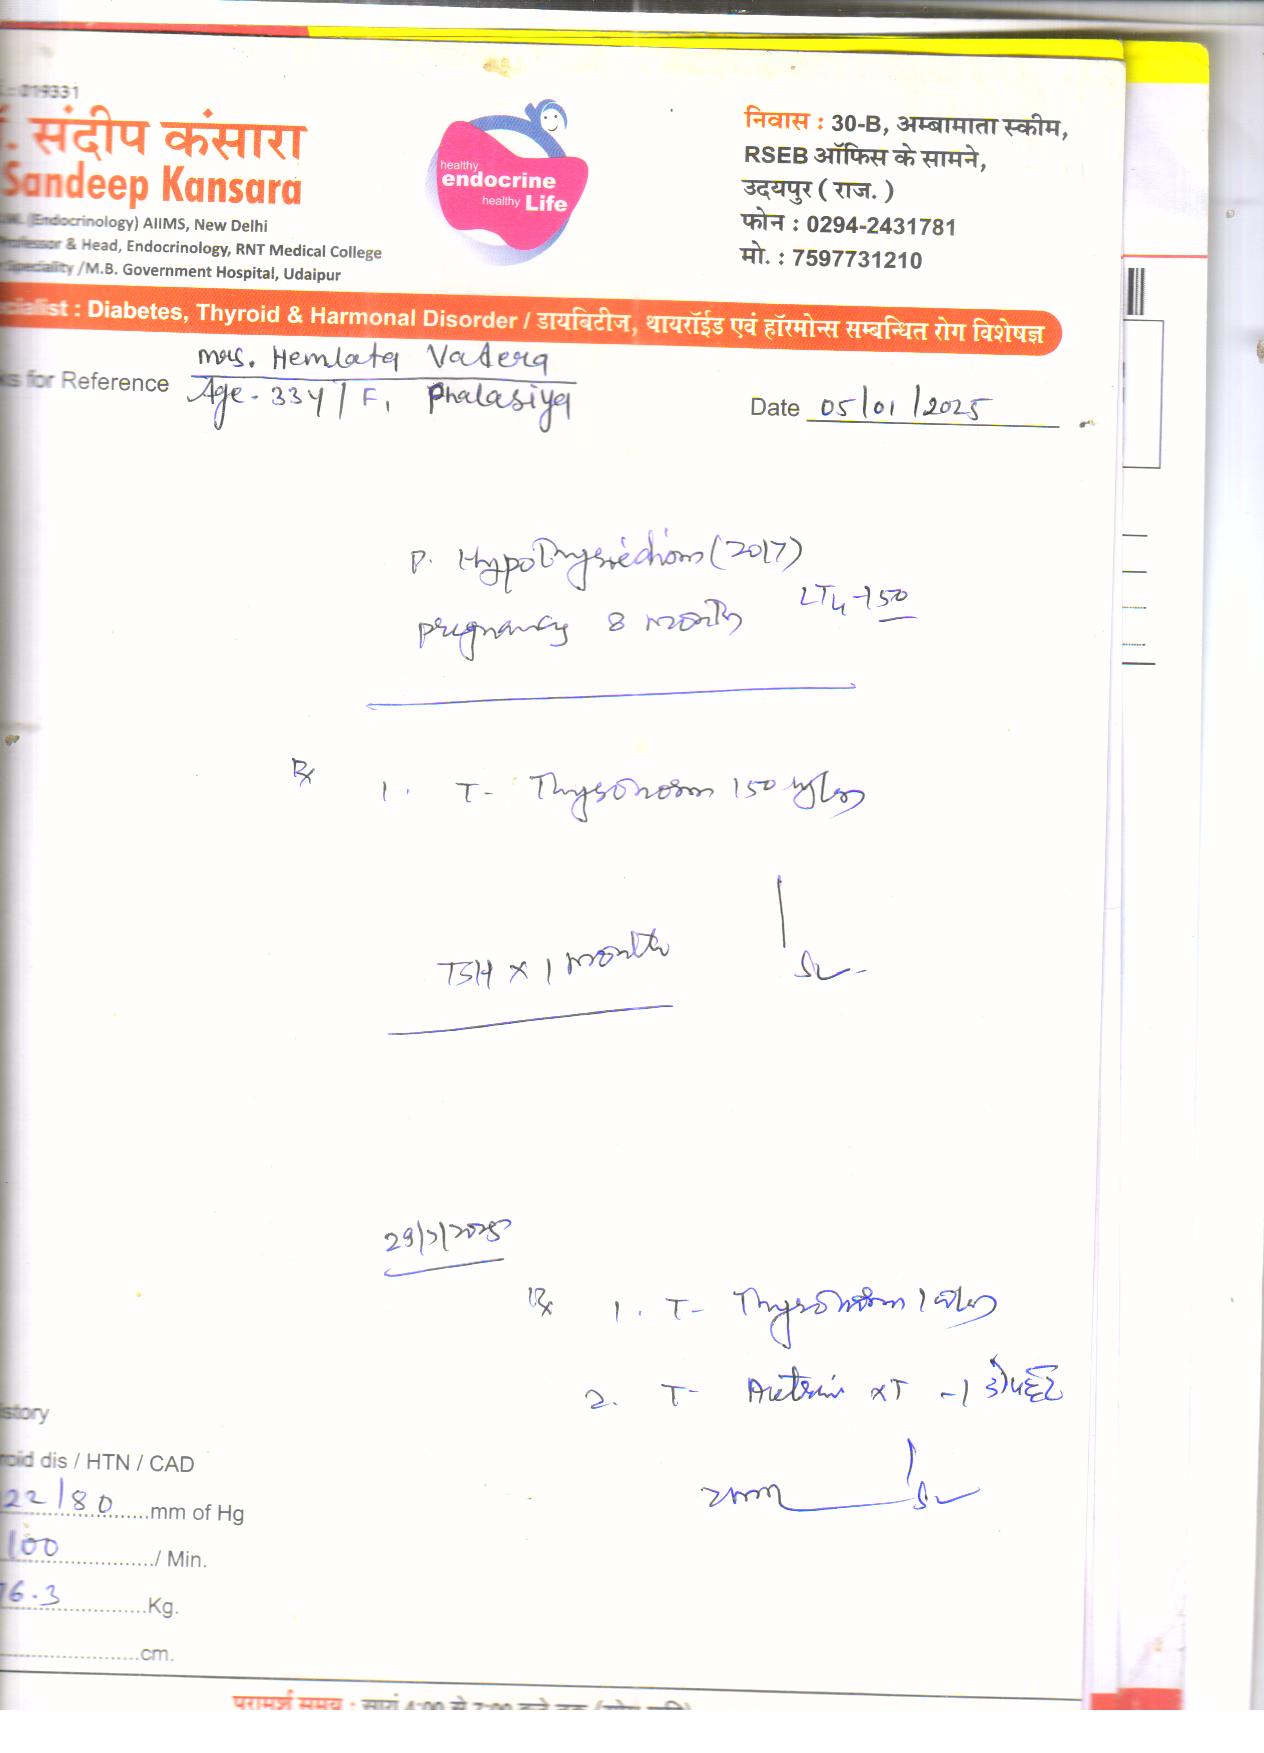 019331
. संदीप कंसारा
Sandeep Kansara
(Endocrinology) AIIMS, New Delhi
Professor & Head, Endocrinology, RNT Medical College
Speciality /M.B. Government Hospital, Udaipur
healthy
endocrine
healthy Life
निवास : 30-B, अम्बामाता स्कीम,
RSEB ऑफिस के सामने,
उदयपुर ( राज. )
फोन : 0294-2431781
मो. : 7597731210
cialist : Diabetes, Thyroid & Harmonal Disorder / डायबिटीज, थायरॉईड एवं हॉरमोन्स सम्बन्धित रोग विशेषज्ञ
Mrs. Hemlata Vadera
ks for Reference
Age- 33Y / F, Phalasiya
Date 05/01/2025
P. Hypothyroidism (2017)
LT4-150
pregnancy 8 month
Rx
1. T- Thyronorm 150
TSH x 1 month
2025
Rx 1. T- Thyronorm 1
2. T- XT -1
istory
roid dis / HTN / CAD
22/80 mm of Hg
100 / Min.
76.3 Kg.
cm.
परामर्श समय : सायं 4:00 से 7:00 बजे तक